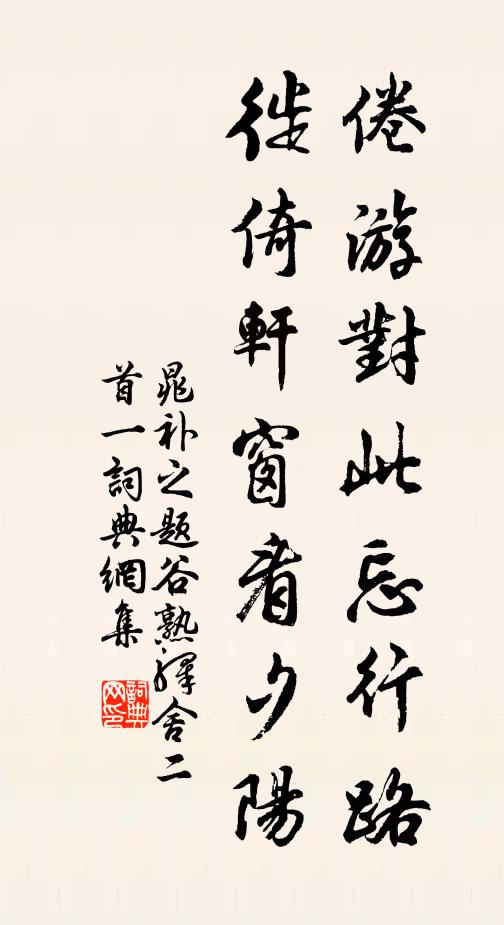 倦游對此忘行路
徙倚軒窗看夕陽
晁补之题谷熟驛舍二
首一詞典網集
詞典网印